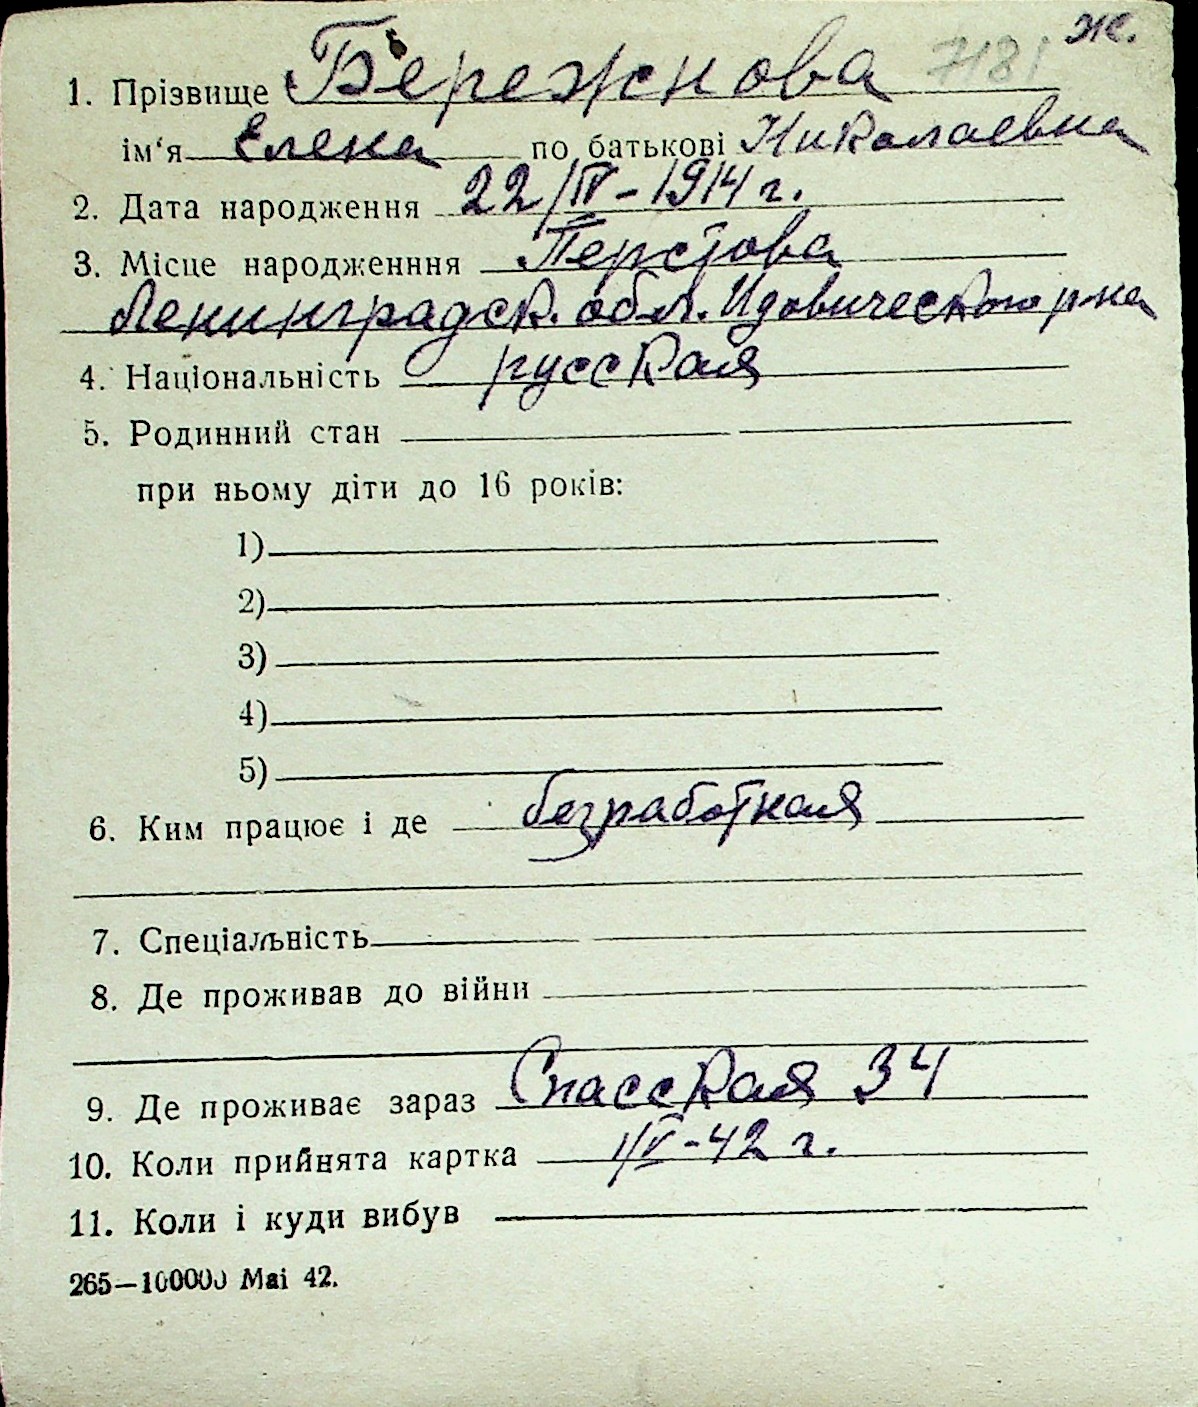 7181 ж.
1. Прізвище Бережнова
ім'я Елена по батькові Николаевна
2. Дата народження 22/IV-1914 г.
3. Місце народженння Перстова
Ленинградск. обл. Идовического р-на
4. Національність русская
5. Родинний стан
при ньому діти до 16 років:
1)
2)
3)
4)
5)
6. Ким працює і де безработная
7. Спеціальність
8. Де проживав до війни
9. Де проживає зараз Спасская 34
10. Коли прийнята картка 1/V-42 г.
11. Коли і куди вибув
265—100000 Mai 42.